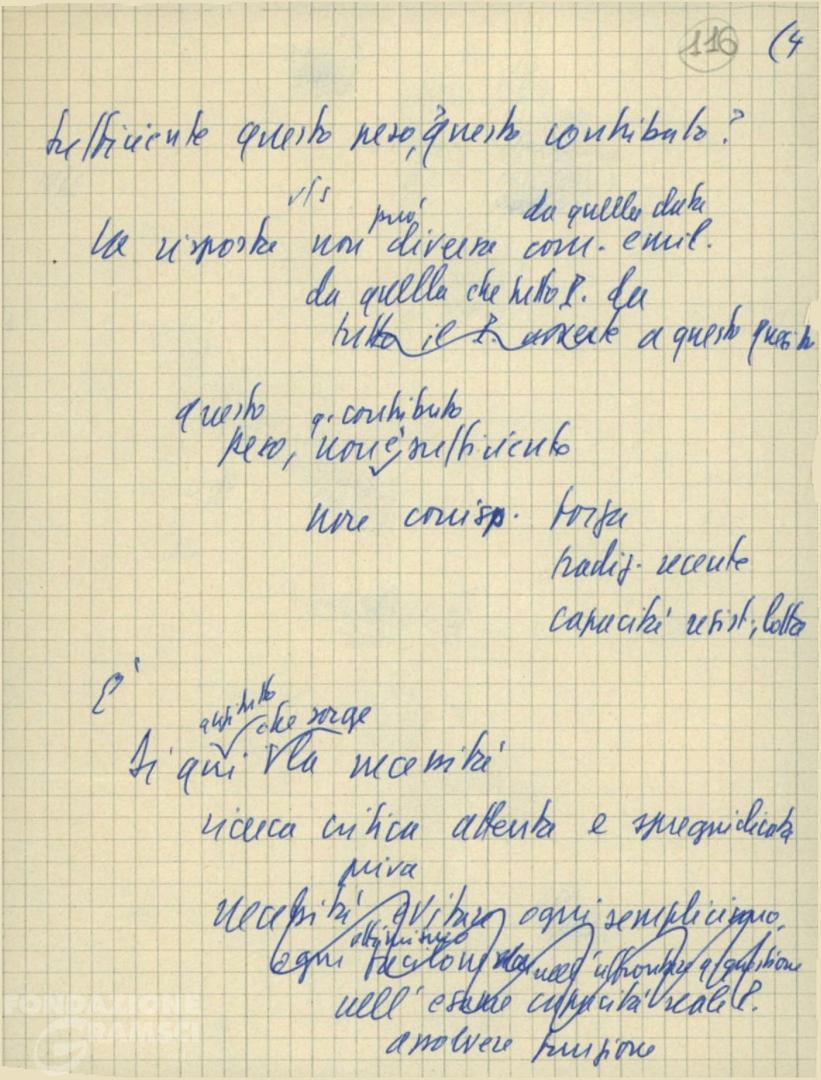 116 (4
sufficiente questo peso, questo contributo?
v/s
può da quella data
La risposta non diversa com. emil.
da quella che tutto P. da
tutto il P. a questo quesito
questo q. contributo
peso, non è sufficiente
non corrisp. forza
tradiz. recente
capacità resist., lotta
È
anzitutto che sorge
di qui la necessità
ricerca critica attenta e spregiudicata
priva
necessità evitare ogni semplicismo,
ottimismo
ogni nell'affrontare q. questione
nell'esame capacità reale P.
assolvere funzione
FONDAZIONE
GRAMSCI